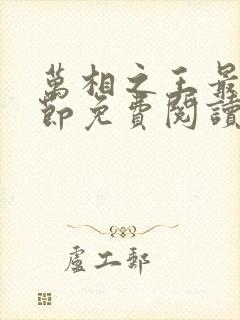 萬相之王最
節免費閱讀
盧工郵